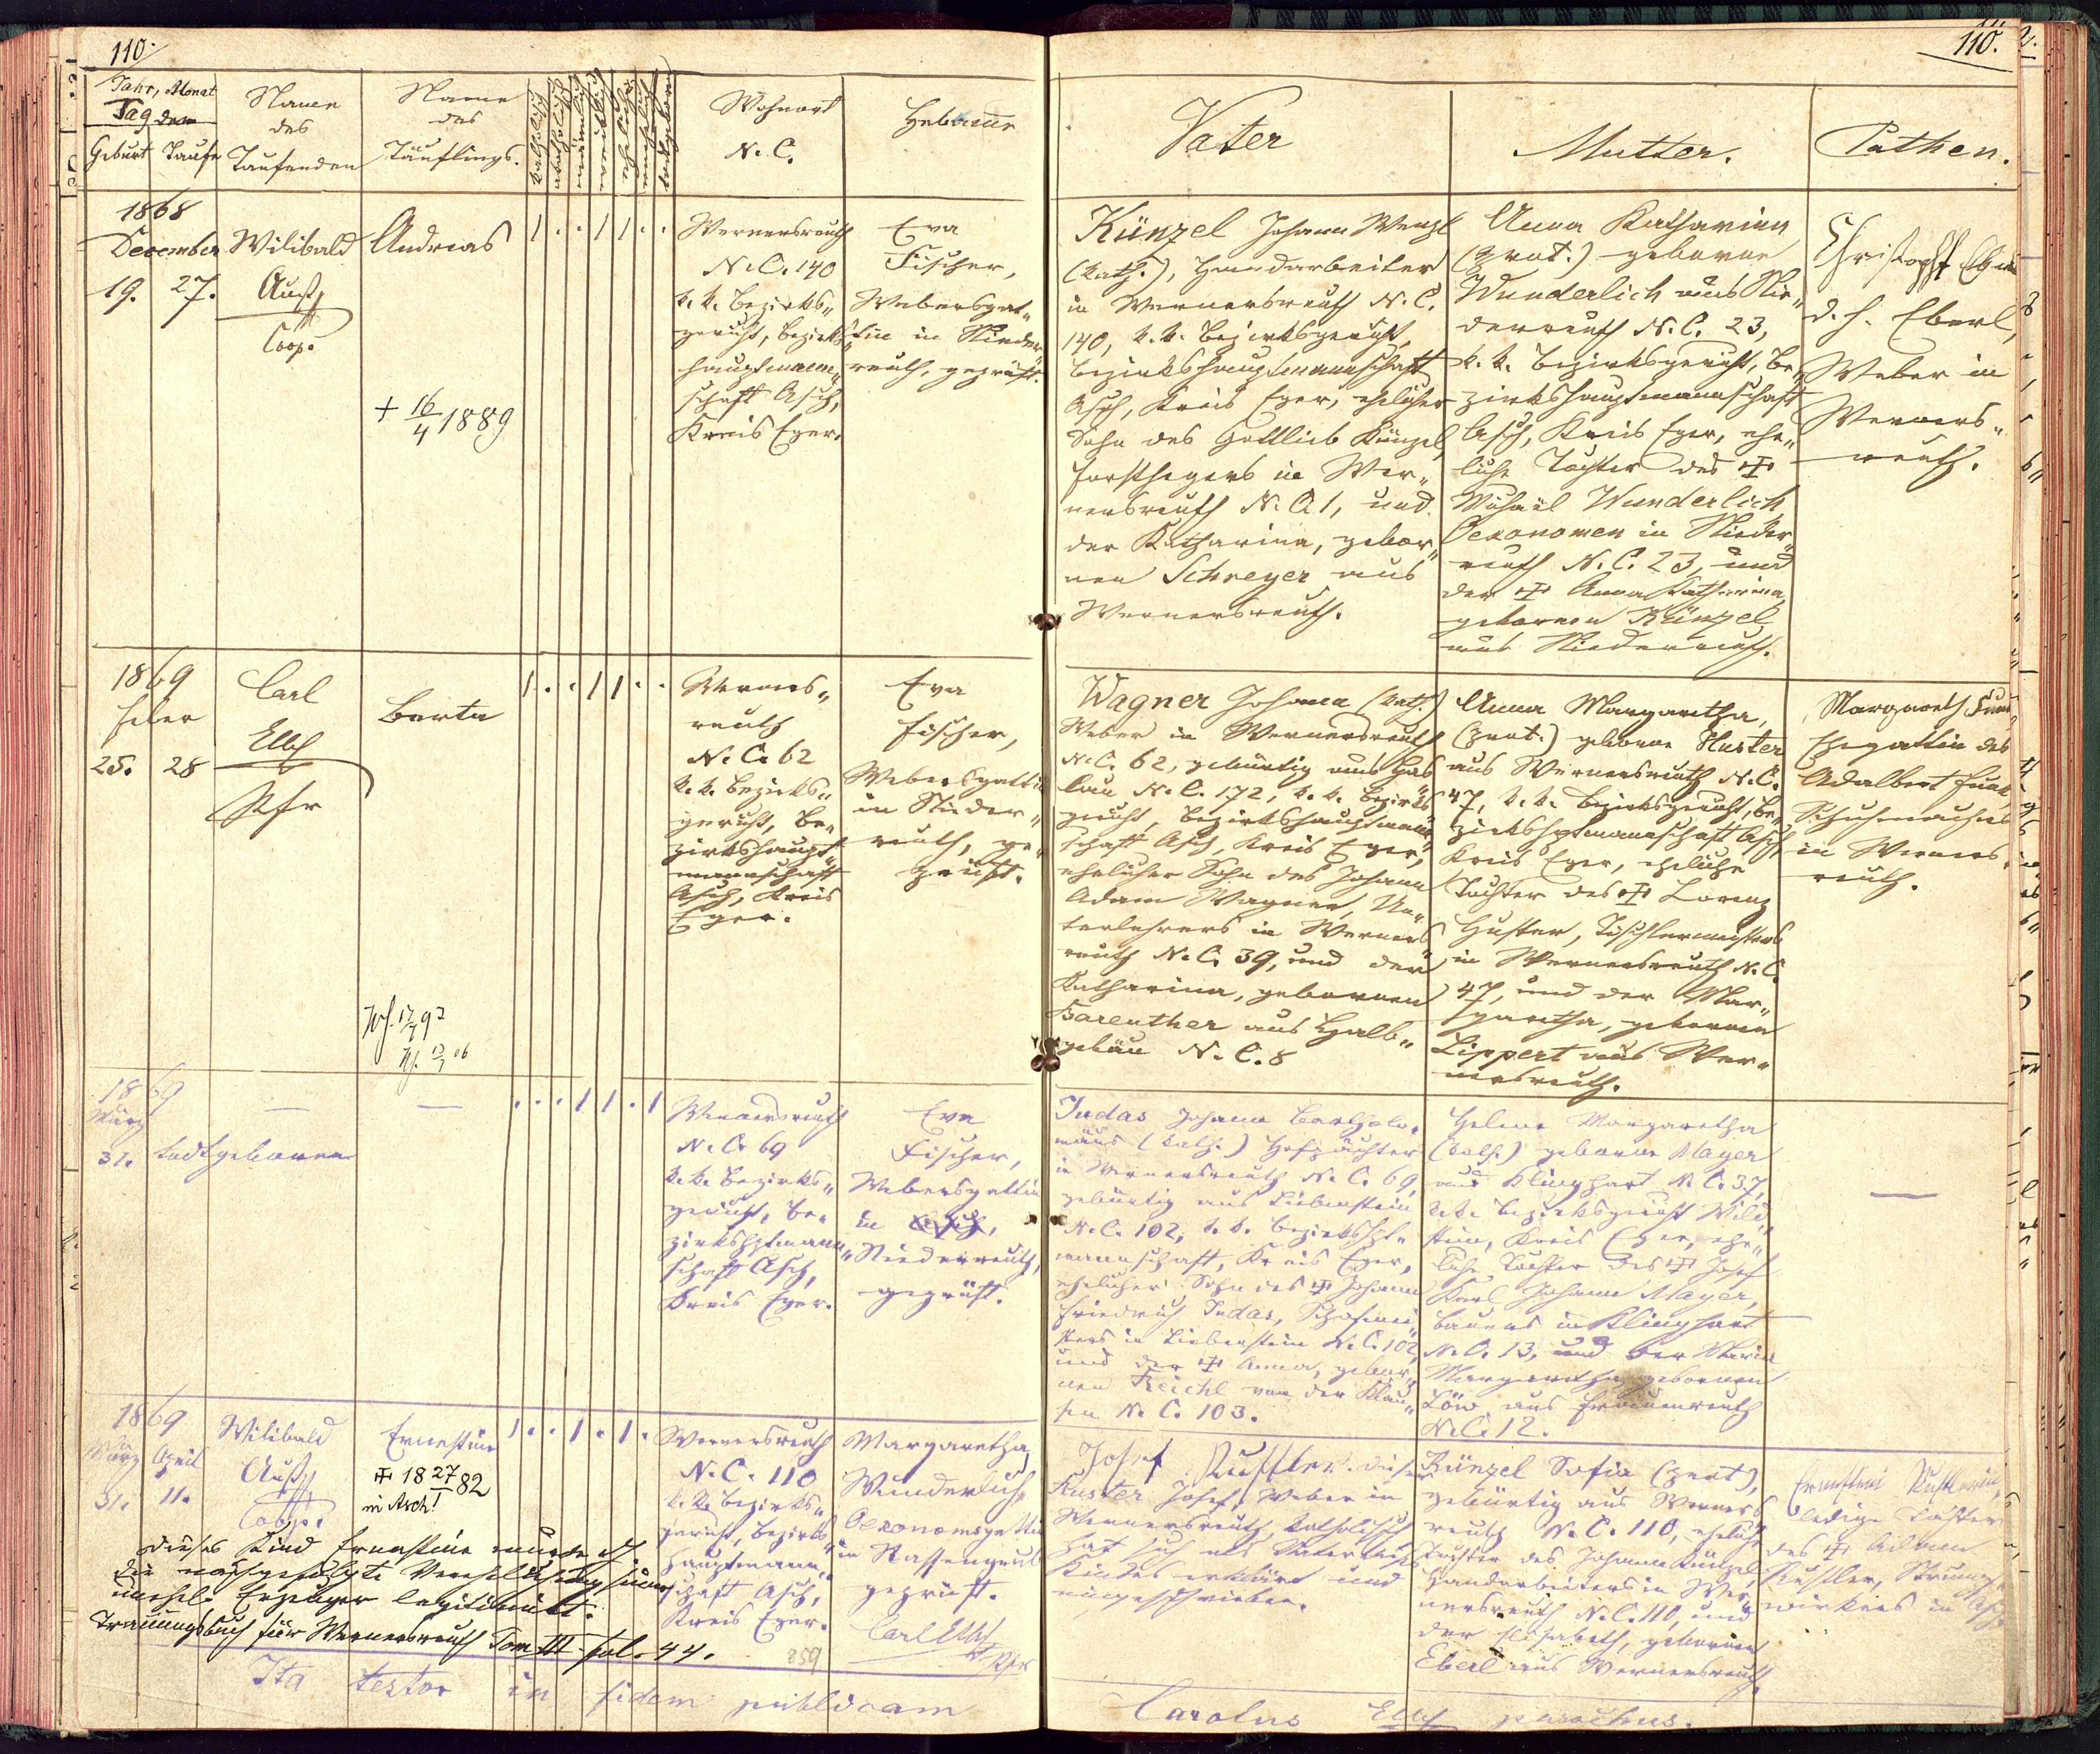 110.
110.
Jahr, Monat
Tag der
Geburt Taufe
Namen
des
Taufenden
Name
des
Täuflings.
Wohnort
N. C.
Hebamme
Vater
Mutter.
Pathen.
1868
December
19. 27.
Wilibald
Coop.
Andreas
+ 16/4 1889
Wernersreuth
N. C. 140
k. k. Bezirks-
gericht, Bezirks-
hauptmann-
schaft Asch,
Kreis Eger.
Eva
Fischer,
Webersgat-
tin in Nieder-
reuth, geprüft.
Künzel Johann Wenzl
(kath.), Handarbeiter
in Wernersreuth N. C.
140, k. k. Bezirksgericht,
Bezirkshauptmannschaft
Asch, Kreis Eger, ehelicher
Sohn des Gottlieb Künzel,
Forsthegers in Wer-
nersreuth N. C. 1, und
der Katharina, gebor-
nen Schreyer aus
Wernersreuth.
Anna Katharina
(prot.) geborne
Wunderlich aus Nie-
derreuth N. C. 23,
k. k. Bezirksgericht, Be-
zirkshauptmannschaft
Asch, Kreis Eger, ehe-
liche Tochter des +
Michael Wunderlich,
Oekonomen in Nieder-
reuth N. C. 23, und
der + Anna Katharina,
gebornen Künzel
aus Niederreuth.
Christoph
d. h. Eberl,
Weber in
Werners-
reuth.
1869
Feber
25. 28
Carl
Pfr
Berta
Werners-
reuth
N. C. 62
k. k. Bezirks-
gericht, Be-
zirkshaupt-
mannschaft
Asch, Kreis
Eger.
Eva
Fischer,
Webersgattin
in Nieder-
reuth, ge-
prüft.
Wagner Johann (kath.)
Weber in Wernersreuth
N. C. 62, gebürtig aus Has-
lau N. C. 172, k. k. Bezirks-
gericht, Bezirkshauptmann-
schaft Asch, Kreis Eger,
ehelicher Sohn des Johann
Adam Wagner, Un-
terlehrers in Werners-
reuth N. C. 39, und der
Katharina, gebornen
Bareuther aus Halb-
gebäu N. C. 8
Anna Margaretha,
(prot.) geborne Huster
aus Wernersreuth N. C.
47, k. k. Bezirksgericht, Be-
zirkshptmannschaft Asch
Kreis Eger, eheliche
Tochter des + Lorenz
Huster, Tischlermeisters
in Wernersreuth N. C.
47, und der Mar-
garetha, gebornen
Lippert aus Wer-
nersreuth.
Margareth
Ehegattin des
Adalbert
Schuhmachers
in Werners-
reuth.
1869
März
31.
todtgeboren
Wernersreuth
N. C. 69
k. k. Bezirks-
gericht, Be-
zirkshptmann-
schaft Asch,
Kreis Eger.
Eva
Fischer,
Webersgattin
in Asch,
Niederreuth,
geprüft.
Judas Johann Bartholo-
mäus (kath.) Hofpächter
in Wernersreuth N. C. 69,
gebürtig aus Liebenstein
N. C. 102, k. k. Bezirkshpt-
mannschaft, Kreis Eger,
ehelicher Sohn des + Johann
Friedrich Judas, Schafmei-
sters in Liebenstein N. C. 102,
und der + Anna, gebor-
nen Reichl von der Klau-
sen N. C. 103.
Helena Margaretha
(kath.) geborne Mayer
aus Klinghart N. C. 37,
k. k. Bezirksgericht Wild-
stein, Kreis Eger, ehe-
liche Tochter des + Josef
Karl Johann Mayer,
Bauers in Klinghart
N. C. 13, und der Maria
Margaretha, gebornen
Löw aus Frauenreuth
N. C. 12.
1869
März April
31. 11.
Wilibald
Coop.
Ernestine
+ 18 27 82
in Asch!
Wernersreuth
N. C. 110
k. k. Bezirks-
gericht, Bezirks-
hauptmann-
schaft Asch,
Kreis Eger.
Margaretha
Wunderlich,
Oekonomsgattin
in Nassengrub
geprüft.
Josef
Josef, Weber in
Wernersreuth, katholisch
hat sich als Vater dieses
Kindes erklärt und
eingeschrieben.
Künzel Sofia (prot.),
gebürtig aus Werners-
reuth N. C. 110, eheliche
Tochter des Johann Künzel,
Handarbeiters in Wer-
nersreuth N. C. 110, und
der Elisabeth, gebornen
Eberl aus Wernersreuth.
ledige Tochter
des + Adam
Strumpf-
wirkers in Asch
Dieses Kind Ernestine wurde
die nachgefolgte Verehelichung seiner
unehel. Erzeuger legitimirt.
Trauungsbuch für Wernersreuth Tom III fol. 44.
859
Ita testor in fidem publicam
Carolus parochus.